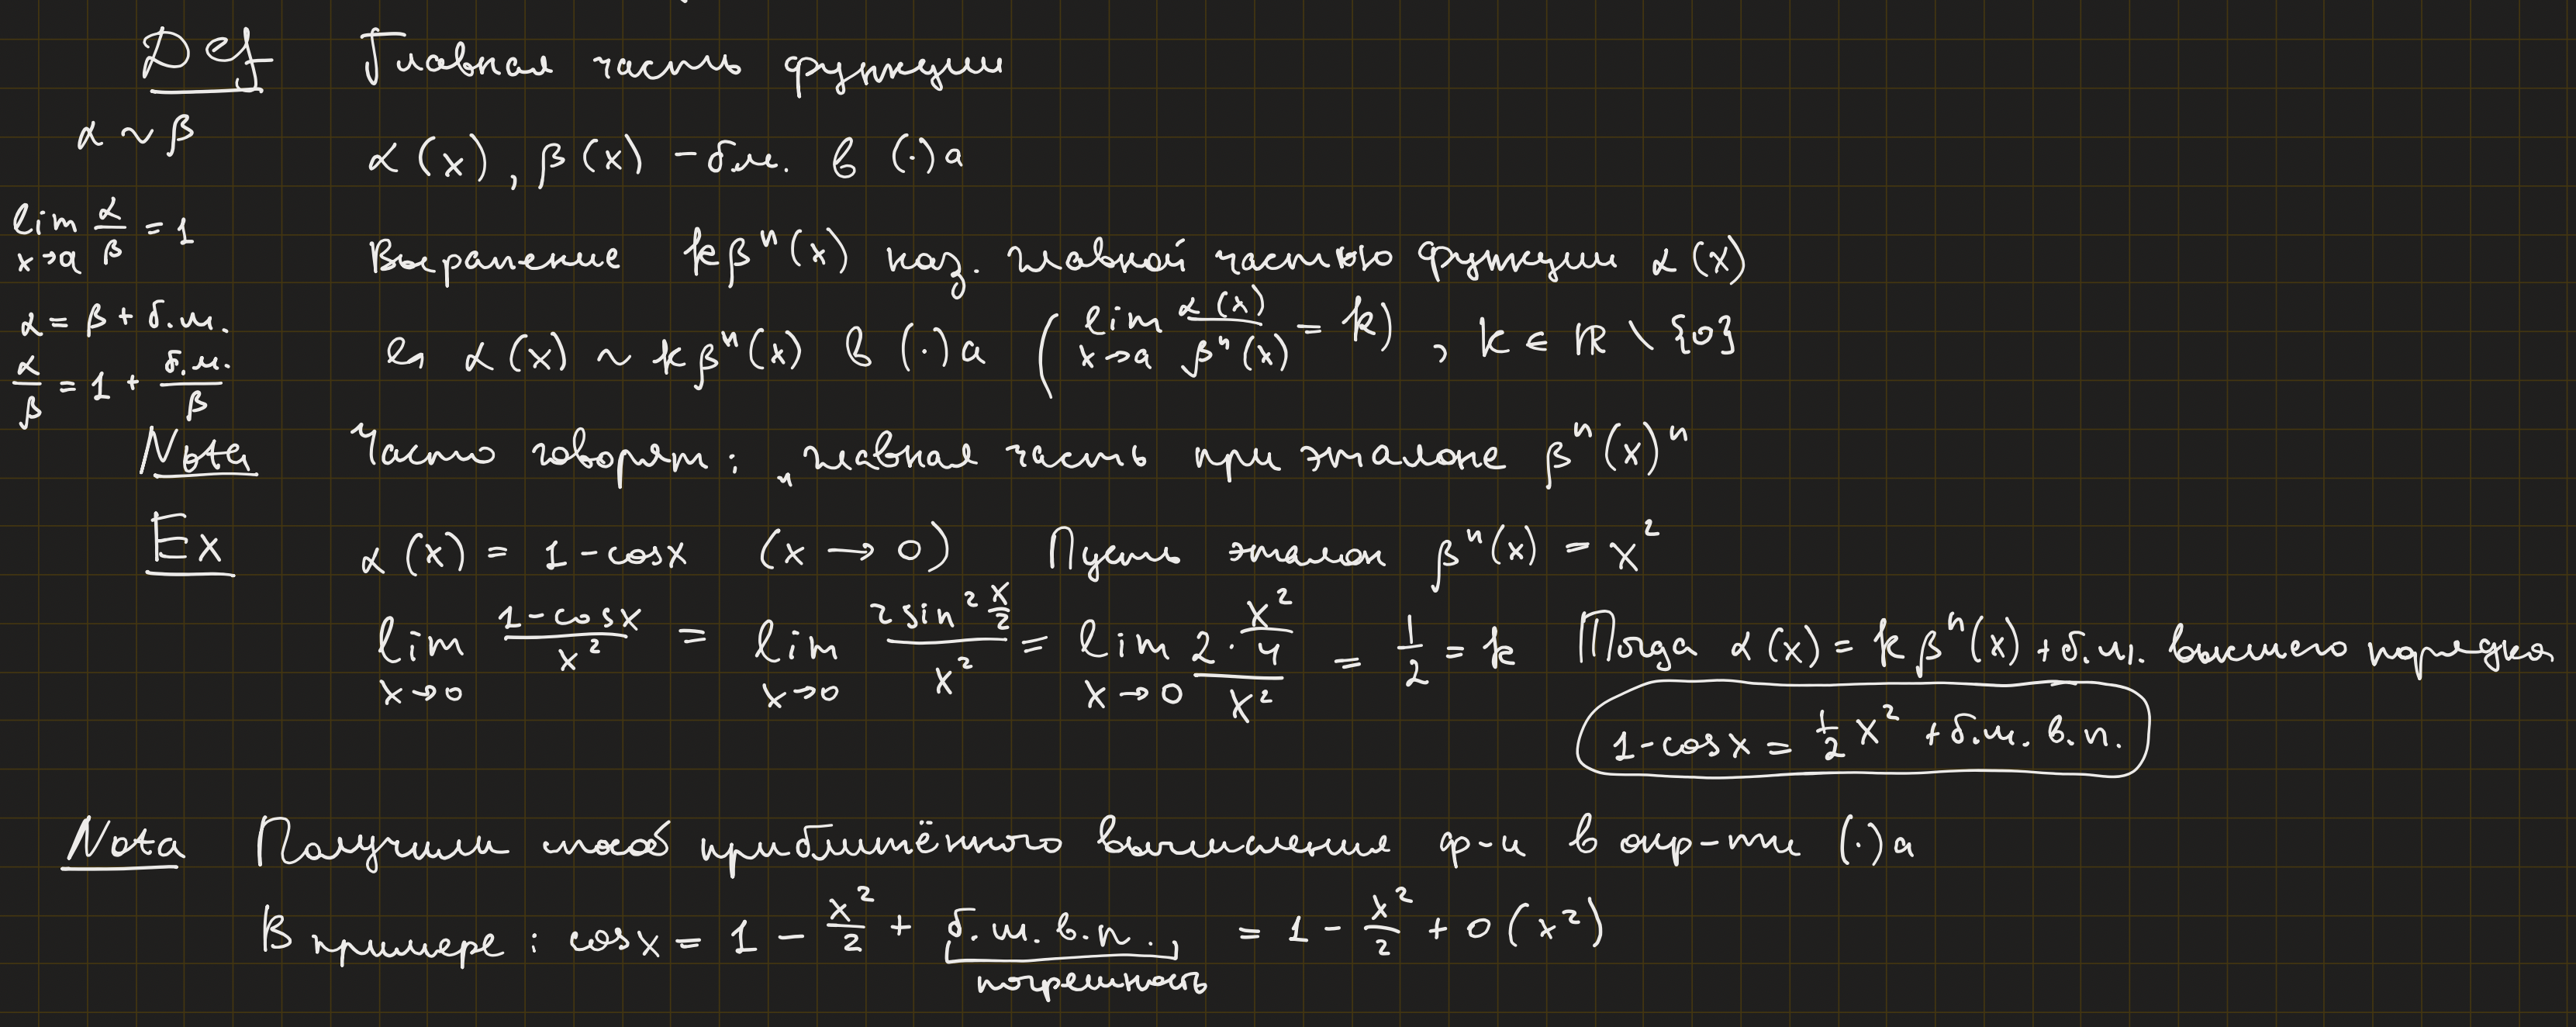 Def Главная часть функции
α ~ β
α(x), β(x) - б.м. в (·)a
lim x→a α/β = 1
Выражение kβⁿ(x) наз. главной частью функции α(x)
α = β + б.м.
α/β = 1 + б.м./β
α(x) ~ kβⁿ(x) в (·)a (lim x→a α(x)/βⁿ(x) = k), k ∈ ℝ \ {0}
Nota Часто говорят: „главная часть при эталоне βⁿ(x)"
Ex α(x) = 1 - cosx (x → 0) Пусть эталон βⁿ(x) = x²
lim x→0 (1-cosx)/x² = lim x→0 (2sin² x/2)/x² = lim x→0 (2·x²/4)/x² = 1/2 = k Тогда α(x) = kβⁿ(x) + б.м. высшего порядка
1-cosx = 1/2 x² + б.м. в.п.
Nota Получили способ приближённого вычисления ф-и в окр-ти (·)a
В примере: cosx = 1 - x²/2 + б.м. в.п. = 1 - x²/2 + o(x²)
погрешность